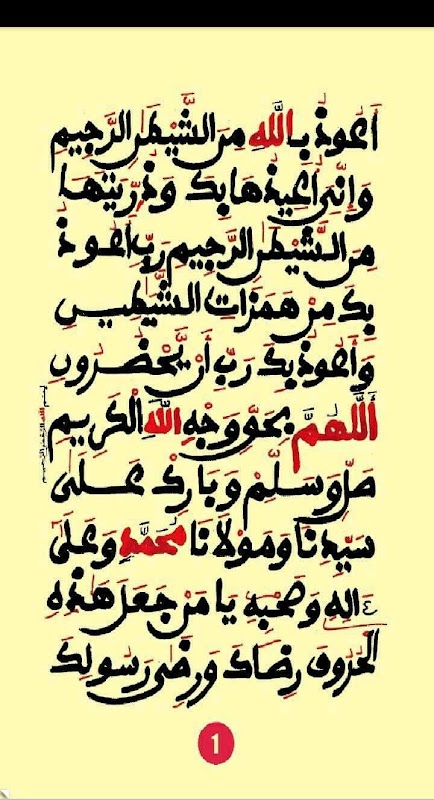 أَعُوذُ بِاللَّهِ مِنَ الشَّيْطَٰنِ الرَّجِيمِ
وَإِنِّيَ أُعِيذُهَا بِكَ وَذُرِّيَّتَهَا
مِنَ الشَّيْطَٰنِ الرَّجِيمِ رَبِّ أَعُوذُ
بِكَ مِنْ هَمَزَاتِ الشَّيَٰطِينِ
وَأَعُوذُ بِكَ رَبِّ أَنْ يَحْضُرُونِ
بسم الله الرحمن الرحيم
أَللَّهُمَّ بِحَقِّ وَجْهِ اللَّهِ الْكَرِيمِ
صَلِّ وَسَلِّمْ وَبَارِكْ عَلَى
سَيِّدِنَا وَمَوْلَانَا مُحَمَّدٍ وَعَلَىٰ
ءَالِهِ وَصَحْبِهِ يَا مَنْ جَعَلَ هَذِهِ
الْحُرُوفَ رِضَاكَ وَرِضَى رَسُولِكَ
1